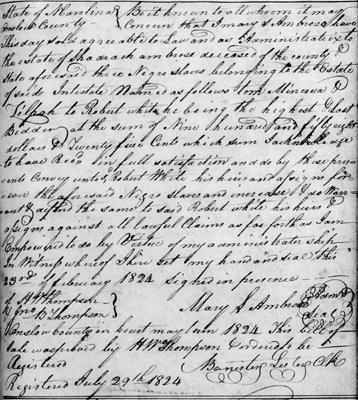 State of N Carolina } Be it known to all whom it may
Onslow County } Concern that I Mary S Ambrose have
this day sold agreeable to Law and as Administratrix to
the estate of Shadrach ambrose deceased of the County &
State aforesaid three Negro Slaves belonging to the Estate
of said Intestate Named as follows Tom Minerva &
to Robert White he being the highest & last
Bidder at the sum of Nine hundred and fifty eight
dollars & Twenty five Cents which sum I acknowledge
to have Recd in full satisfaction and do by these pre
sents Convey unto Robert White his heirs and assigns for
ever the aforesaid Negro Slaves and increase I do War
rant & the same to said Robert White his heirs &
assigns against all lawful Claims as far forth as I am
Empowered to do by Virtue of my administratorship
In Witness whereof I here set my hand and seal this
23rd of february 1824 Signed in presence
of H W Thompson }
Thompson } Mary S Ambrose
Seal
Onslow County in Court may term 1824. This bill of
sale was proved by H W Thompson & ordered to be
Registered
Banister Lester Clk
Registered July 29th 1824